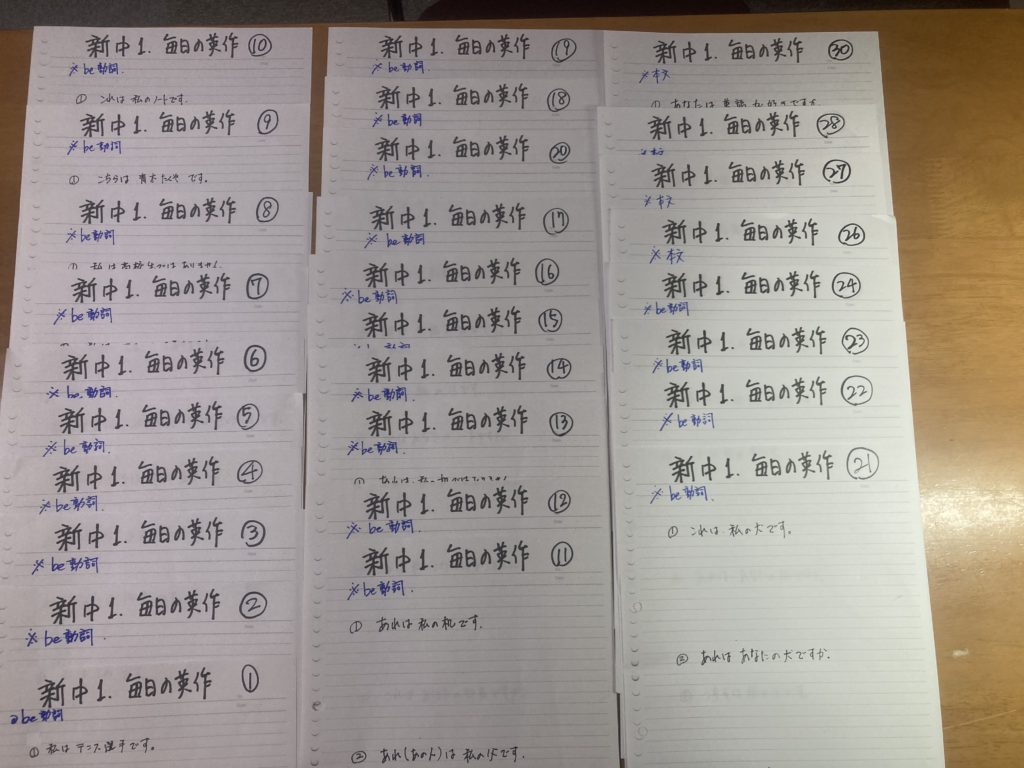 新中1. 毎日の英作 ⑩
※be動詞.
① これは 私のノートです.
新中1. 毎日の英作 ⑨
※be動詞
① こちらは 青木たくや です。
新中1. 毎日の英作 ⑧
※be動詞
① 私は高校生ではありません.
新中1. 毎日の英作 ⑦
※be動詞
新中1. 毎日の英作 ⑥
※be.動詞.
新中1. 毎日の英作 ⑤
※be動詞.
新中1. 毎日の英作 ④
※be動詞.
新中1. 毎日の英作 ③
※be動詞.
新中1. 毎日の英作 ②
※be動詞
新中1. 毎日の英作 ①
be動詞
① 私は テニス選手です。
新中1. 毎日の英作 ⑲
※be動詞.
新中1. 毎日の英作 ⑱
※be動詞.
新中1. 毎日の英作 ⑳
※be動詞.
新中1. 毎日の英作 ⑰
※be動詞.
新中1. 毎日の英作 ⑯
※be動詞
新中1. 毎日の英作 ⑮
新中1. 毎日の英作 ⑭
※be動詞.
新中1. 毎日の英作 ⑬
※be動詞.
新中1. 毎日の英作 ⑫
※be動詞.
新中1. 毎日の英作 ⑪
※be動詞.
① あれは 私の机です.
② あれ(あの人)は 私の です.
新中1. 毎日の英作 ㉚
※本文
① あなたは 英語 ですか
新中1. 毎日の英作 ㉘
新中1. 毎日の英作 ㉗
※本文
新中1. 毎日の英作 ㉖
※本文
新中1. 毎日の英作 ㉔
※be動詞
新中1. 毎日の英作 ㉓
※be動詞
新中1. 毎日の英作 ㉒
※be動詞
新中1. 毎日の英作 ㉑
※be動詞.
① これは 私の犬です。
② あれは あなたの犬ですか.